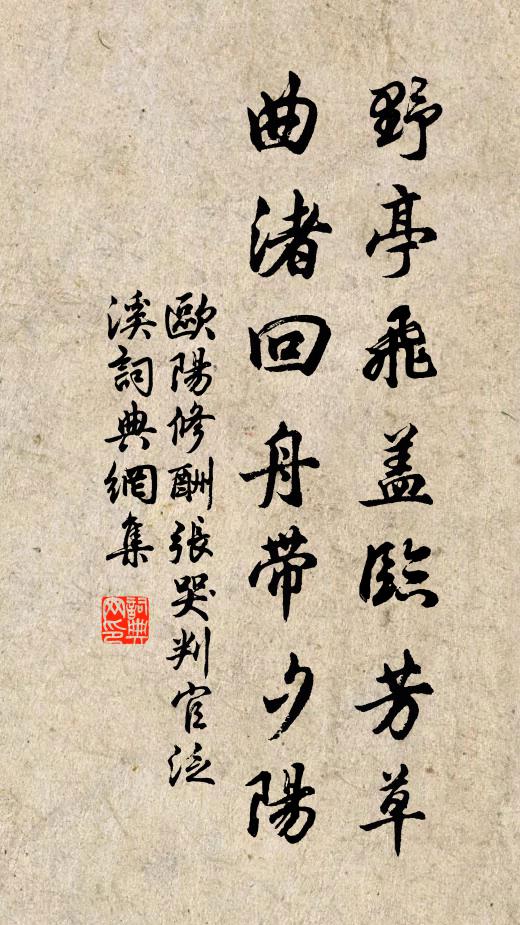 野亭飛盖臨芳草
曲渚回舟帶夕陽
歐陽修酬張哭判官泛
溪詞典網集
詞典
网印